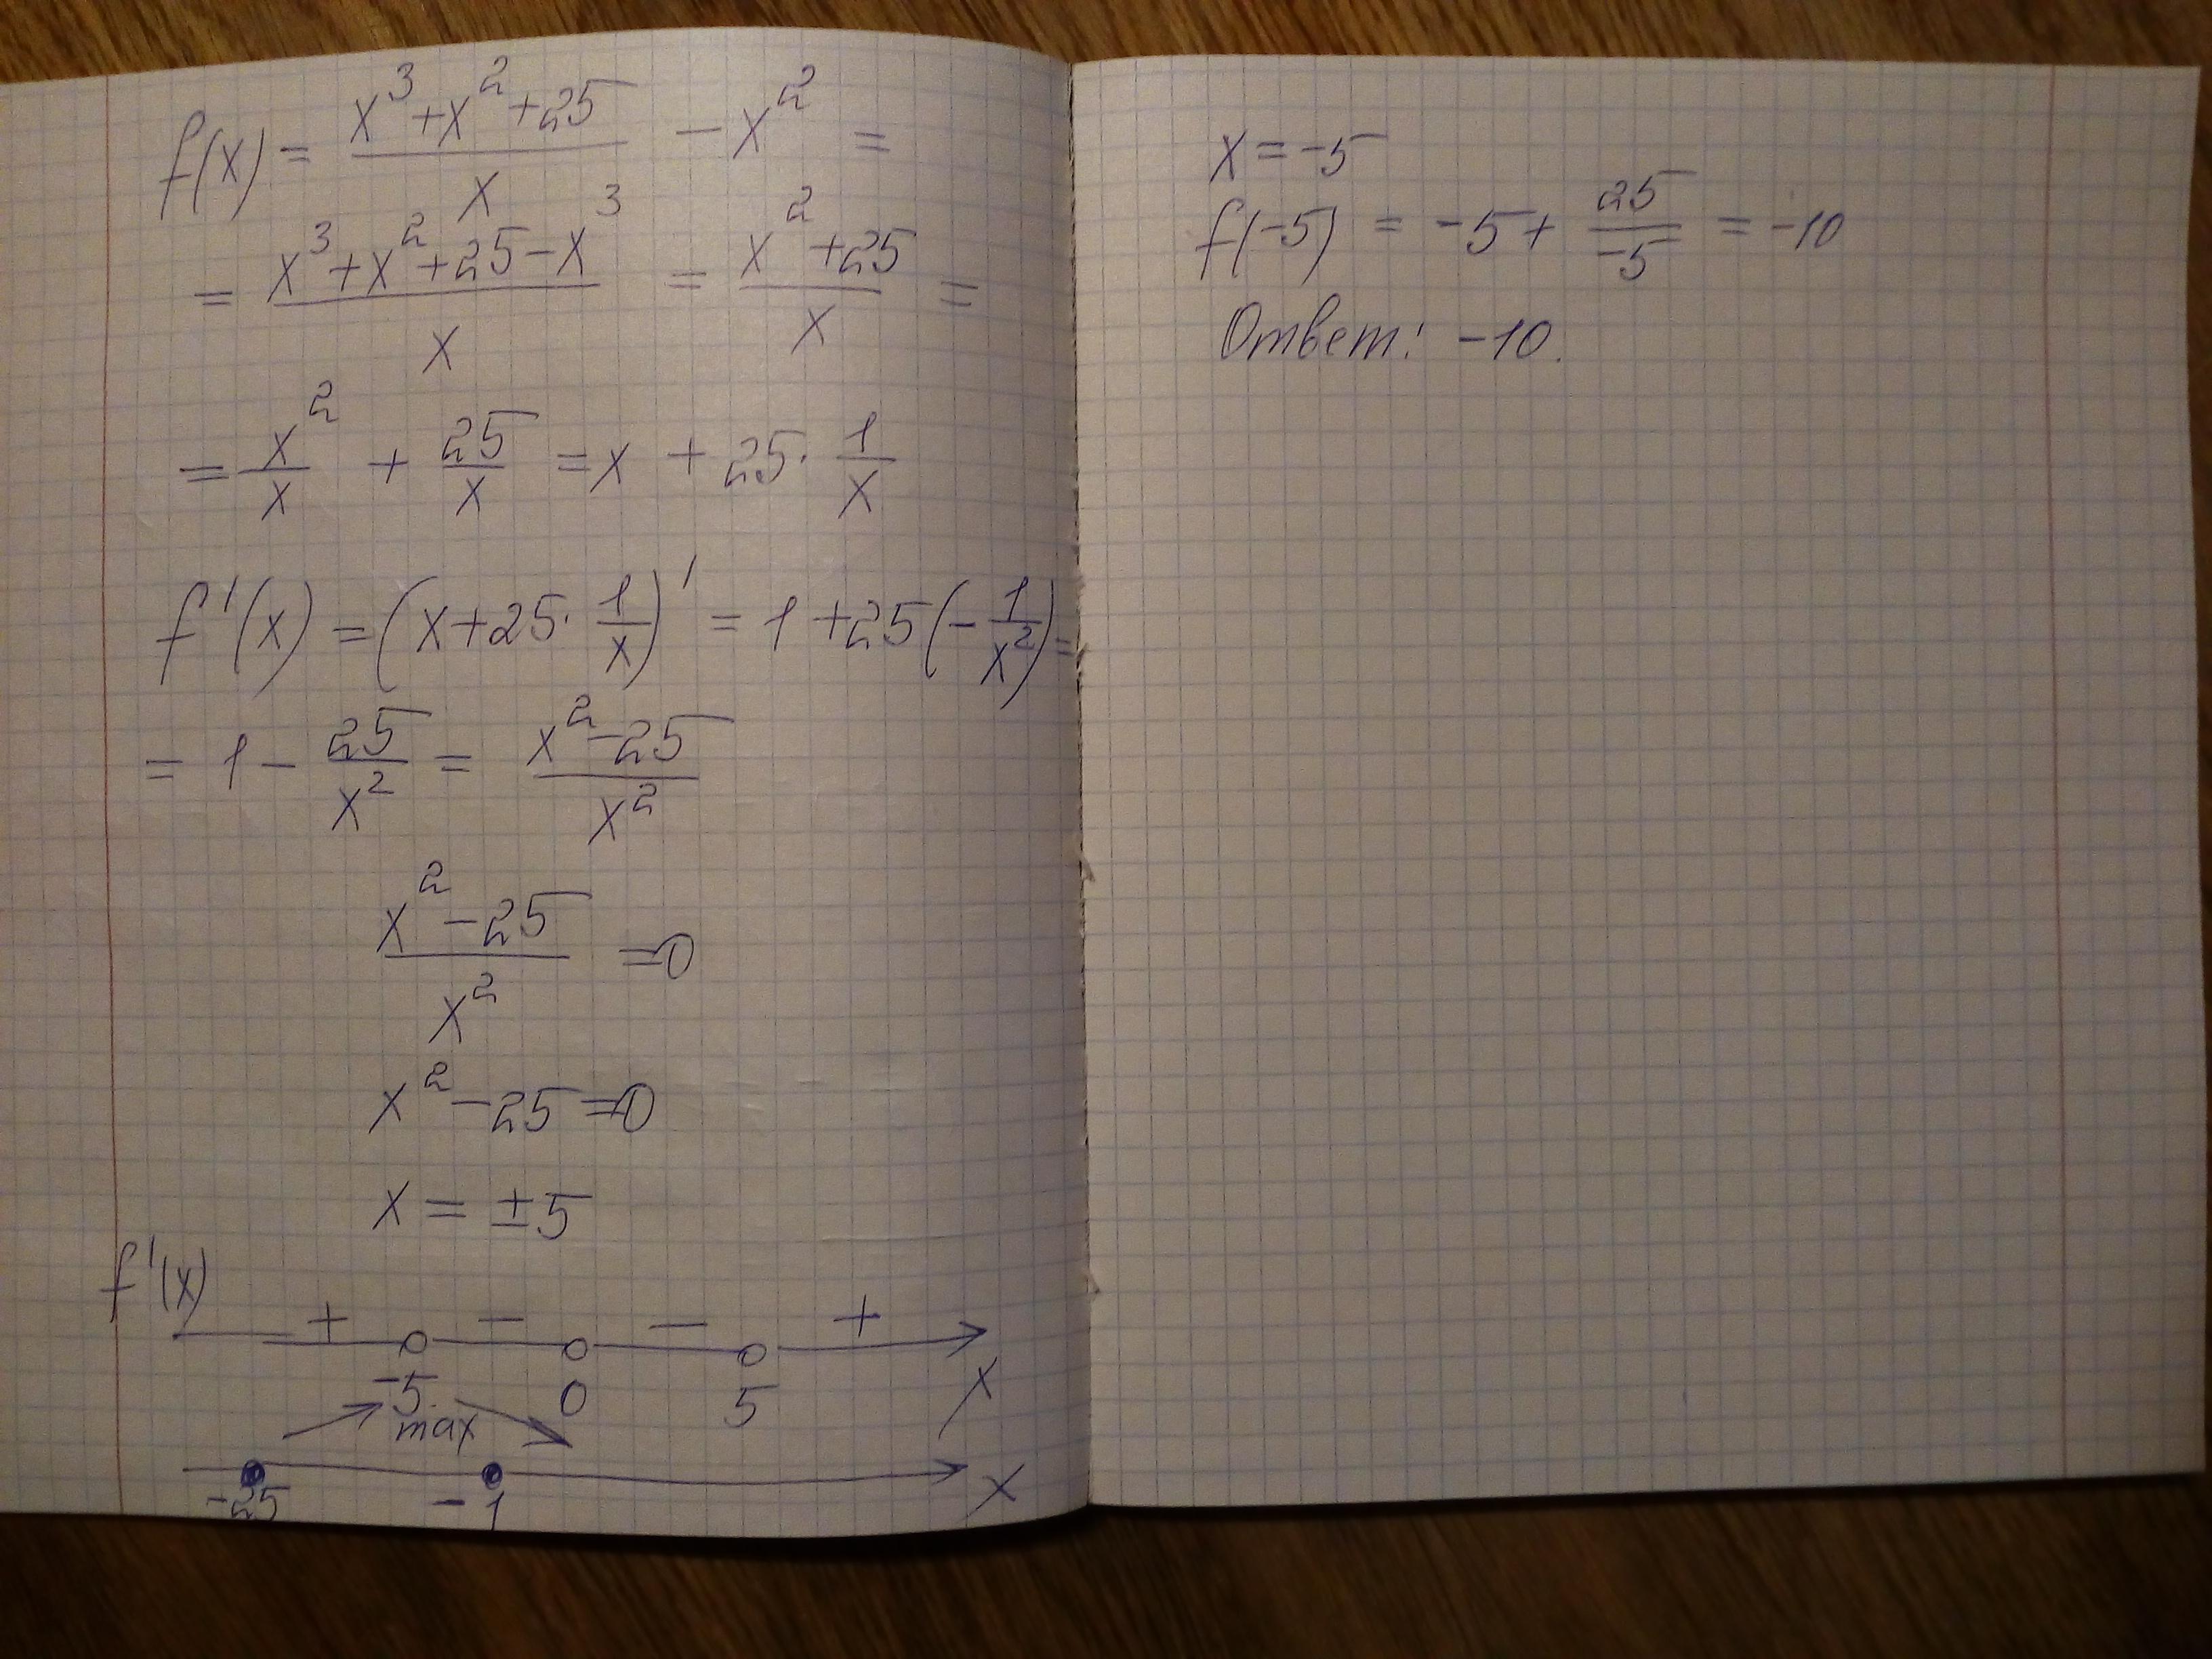 f(x) = (x³+x²+25)/x − x² =
= (x³+x²+25−x³)/x = (x²+25)/x =
= x²/x + 25/x = x + 25· 1/x
f'(x) = (x+25· 1/x)' = 1+25(−1/x²) =
= 1 − 25/x² = (x²−25)/x²
(x²−25)/x² = 0
x²−25=0
x = ±5
f'(x)
+ − − +
−5 0 5 x
max
x
−25 −1
x = −5
f(−5) = −5 + 25/−5 = −10
Ответ: −10.